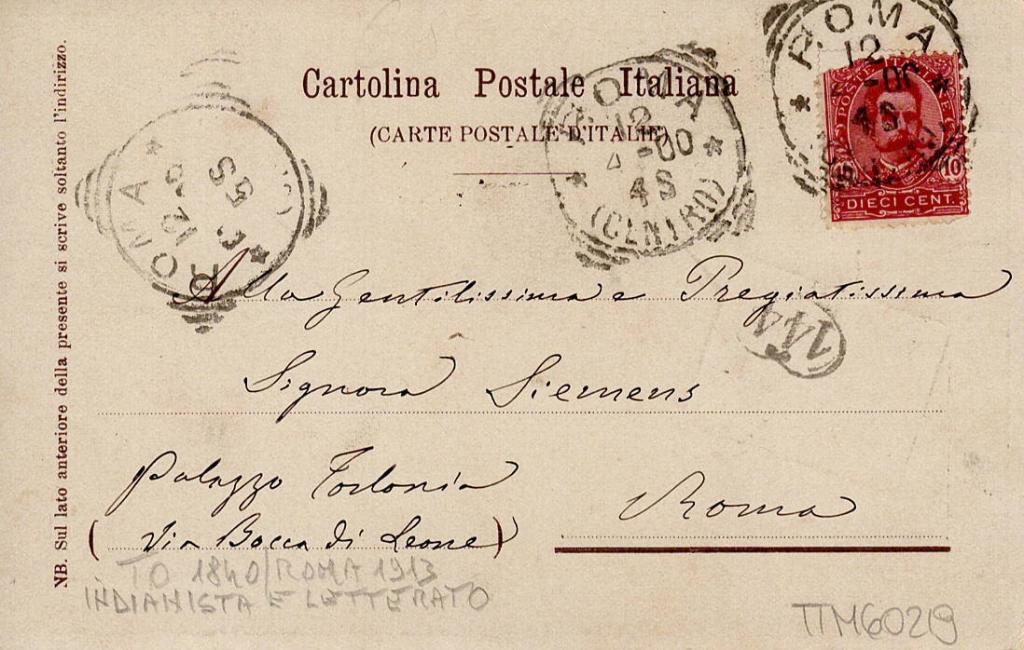 Cartolina Postale Italiana
(CARTE POSTALE D'ITALIE)
NB. Sul lato anteriore della presente si scrive soltanto l'indirizzo.
ROMA
12
ROMA
12
4-00
4S
(CENTRO)
ROMA
12
-00
4S
POSTE
10
DIECI CENT.
Alla Gentilissima e Pregiatissima
144
Signora Siemens
Palazzo Torlonia
Roma
(Via Bocca di Leone)
TO 1840/ROMA 1913
INDIANISTA E LETTERATO
TTM6029